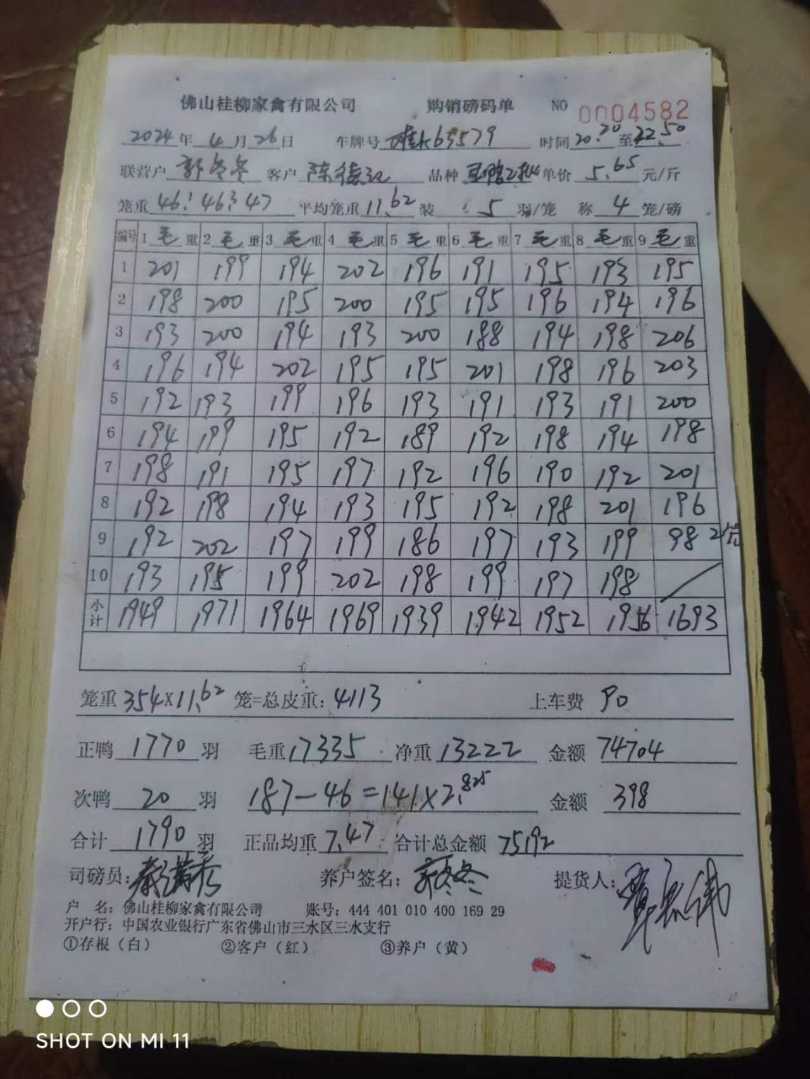 佛山桂柳家禽有限公司 购销磅码单 NO 0004582
2024年 4月 26日 车牌号 69579 时间20.20至22.50
联营户 郭冬冬 客户 陈 品种 单价 5.65 元/斤
笼重 46 46 47 平均笼重 11.62 装 5 羽/笼 称 4 笼/磅
编号 1 毛重 2 毛重 3 毛重 4 毛重 5 毛重 6 毛重 7 毛重 8 毛重 9 毛重
1 201 199 194 202 196 191 195 193 195
2 198 200 195 200 195 195 196 194 196
3 193 200 194 193 200 188 194 198 206
4 196 194 202 195 195 201 198 196 203
5 192 193 199 196 193 191 193 191 200
6 194 199 195 192 189 192 198 194 198
7 198 191 195 197 192 196 190 192 201
8 192 198 194 193 195 192 198 201 196
9 192 202 197 199 186 197 193 199 98 2笼
10 193 195 199 202 198 199 197 198
小计 1949 1971 1964 1969 1939 1942 1952 1956 1693
笼重 354×11.62 笼=总皮重: 4113 上车费 90
正鸭 1770 羽 毛重 17335 净重 13222 金额 74704
次鸭 20 羽 187-46=141×2.825 金额 398
合计 1790 羽 正品均重 7.47 合计总金额 75192
司磅员: 养户签名: 郭冬冬 提货人:
户 名: 佛山桂柳家禽有限公司 账号: 444 401 010 400 169 29
开户行: 中国农业银行广东省佛山市三水区三水支行
①存根（白） ②客户（红） ③养户（黄）
SHOT ON MI 11